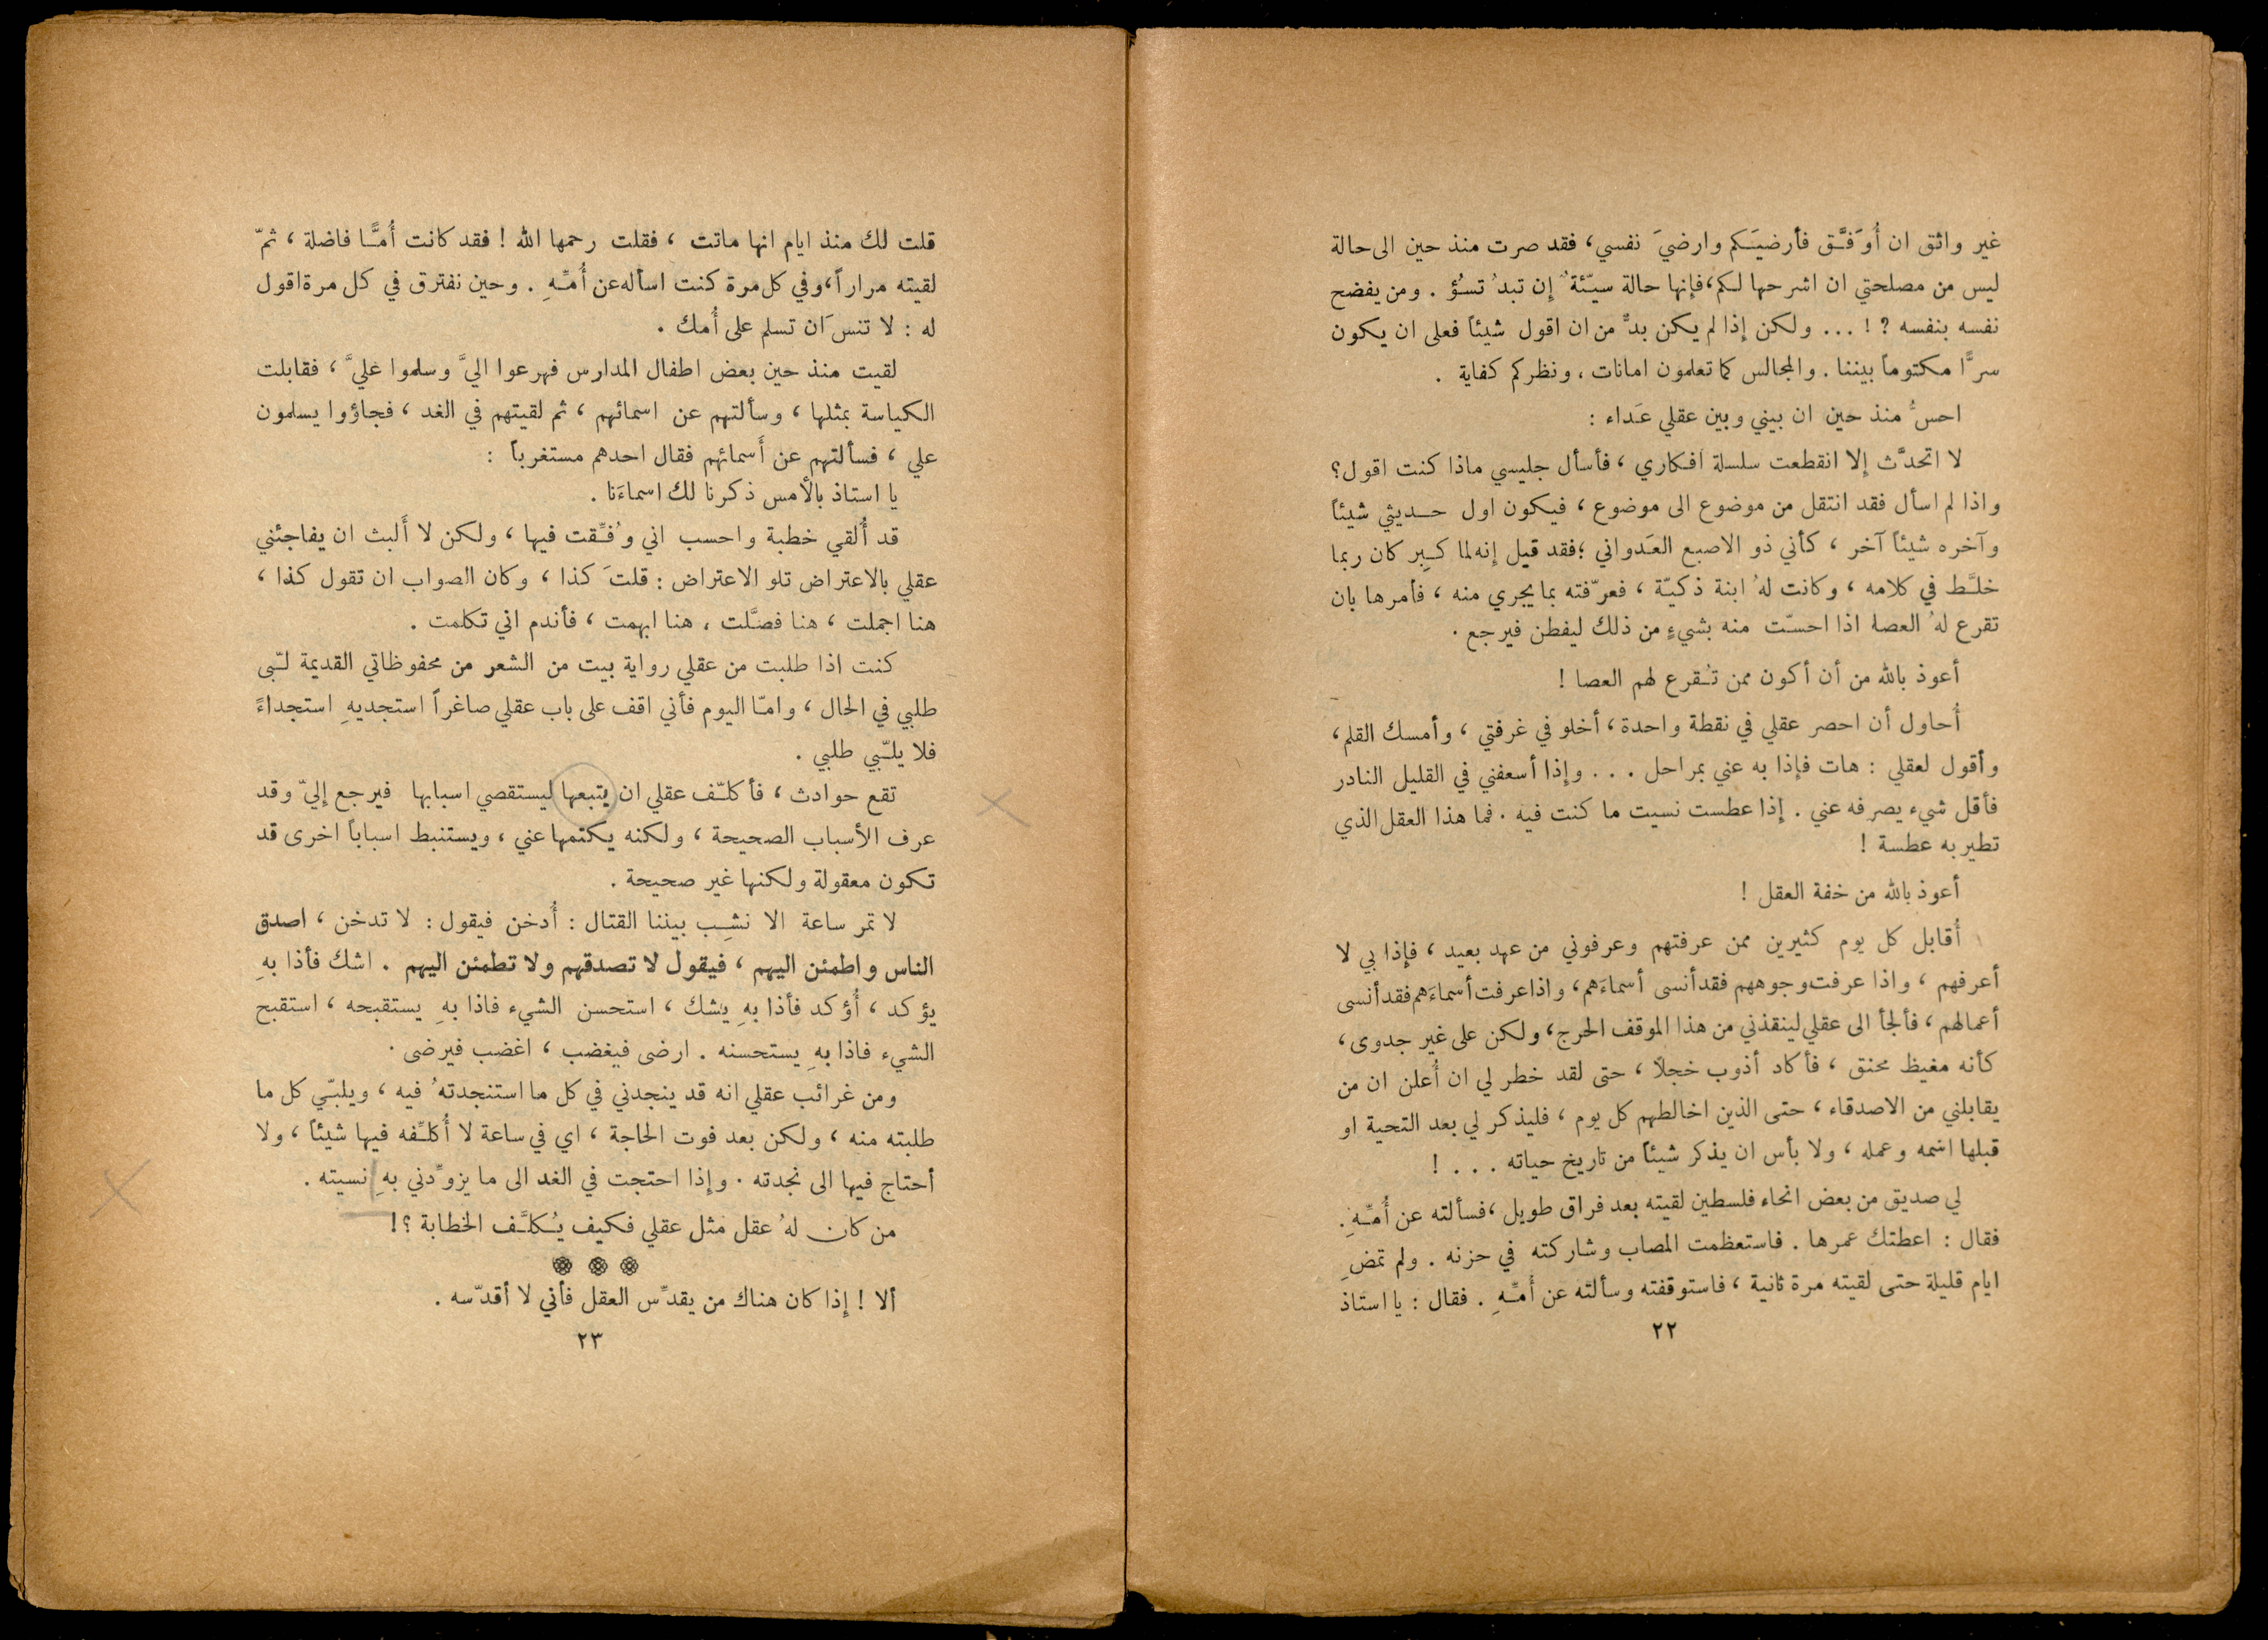 غير واثق ان أُوَفَّق فأرضيَكم وارضيَ نفسي، فقد صرت منذ حين الى حالة
ليس من مصلحتي ان اشرحها لكم، فإنها حالة سيّئةٌ إن تبدُ تسُؤ . ومن يفضح
نفسه بنفسه ؟ ! ... ولكن إذا لم يكن بدٌّ من ان اقول شيئاً فعلى ان يكون
سرًّا مكتوماً بيننا . والمجالس كما تعلمون امانات ، ونظركم كفاية .
احسُّ منذ حين ان بيني وبين عقلي عَداء :
لا اتحدَّث إلا انقطعت سلسلة افكاري ، فأسأل جليسي ماذا كنت اقول؟
واذا لم اسأل فقد انتقل من موضوع الى موضوع ، فيكون اول حديثي شيئاً
وآخره شيئاً آخر ، كأني ذو الاصبع العَدواني ؛ فقد قيل إنه لما كبِر كان ربما
خلَّط في كلامه ، وكانت لهُ ابنة ذكيّة ، فعرّفته بما يجري منه ، فأمرها بان
تقرع لهُ العصا اذا احسّت منه بشيءٍ من ذلك ليفطن فيرجع .
أعوذ بالله من أن أكون ممن تُقرع لهم العصا !
أُحاول أن احصر عقلي في نقطة واحدة ، أخلو في غرفتي ، وأمسك القلم ،
وأقول لعقلي : هات فإذا به عني بمراحل . . . وإذا أسعفني في القليل النادر
فأقل شيء يصرفه عني . إذا عطست نسيت ما كنت فيه . فما هذا العقل الذي
تطير به عطسة !
أعوذ بالله من خفة العقل !
أُقابل كل يوم كثيرين ممن عرفتهم وعرفوني من عهد بعيد ، فإذا بي لا
أعرفهم ، واذا عرفت وجوههم فقد أنسى أسماءَهم ، واذا عرفت أسماءَهم فقد أنسى
أعمالهم ، فألجأ الى عقلي لينقذني من هذا الموقف الحرج ، ولكن على غير جدوى ،
كأنه مغيظ محنق ، فأكاد أذوب خجلاً ، حتى لقد خطر لي ان أُعلن ان من
يقابلني من الاصدقاء ، حتى الذين اخالطهم كل يوم ، فليذكر لي بعد التحية او
قبلها اسمه وعمله ، ولا بأس ان يذكر شيئاً من تاريخ حياته . . . !
لي صديق من بعض انحاء فلسطين لقيته بعد فراق طويل ، فسألته عن أُمّهِ .
فقال : اعطتك عمرها . فاستعظمت المصاب وشاركته في حزنه . ولم تمضِ
ايام قليلة حتى لقيته مرة ثانية ، فاستوقفته وسألته عن أُمّهِ . فقال : يا استاذ
٢٢
قلت لك منذ ايام انها ماتت ، فقلت رحمها الله ! فقد كانت أُمًّا فاضلة ، ثمّ
لقيته مراراً ، وفي كل مرة كنت اسأله عن أُمّهِ . وحين نفترق في كل مرة اقول
له : لا تنسَ ان تسلم على أُمك .
لقيت منذ حين بعض اطفال المدارس فهرعوا اليَّ وسلموا عليَّ ، فقابلت
الكياسة بمثلها ، وسألتهم عن اسمائهم ، ثم لقيتهم في الغد ، فجاؤوا يسلمون
علي ، فسألتهم عن أَسمائهم فقال احدهم مستغرباً :
يا استاذ بالأمس ذكرنا لك اسماءَنا .
قد أُلقي خطبة واحسب اني وُفّقت فيها ، ولكن لا أَلبث ان يفاجئني
عقلي بالاعتراض تلو الاعتراض : قلتَ كذا ، وكان الصواب ان تقول كذا ،
هنا اجملت ، هنا فصَّلت ، هنا ابهمت ، فأندم اني تكلمت .
كنت اذا طلبت من عقلي رواية بيت من الشعر من محفوظاتي القديمة لبّى
طلبي في الحال ، وامّا اليوم فأني اقف على باب عقلي صاغراً استجديهِ استجداءً
فلا يلبّي طلبي .
تقع حوادث ، فأكلّف عقلي ان يتبعها ليستقصي اسبابها فيرجع إليّ وقد
عرف الأسباب الصحيحة ، ولكنه يكتمها عني ، ويستنبط اسباباً اخرى قد
تكون معقولة ولكنها غير صحيحة .
لا تمر ساعة الا نشِب بيننا القتال : أُدخن فيقول : لا تدخن ، اصدق
الناس واطمئن اليهم ، فيقول لا تصدقهم ولا تطمئن اليهم . اشك فأذا بهِ
يؤكد ، أُؤكد فأذا بهِ يشك ، استحسن الشيء فاذا بهِ يستقبحه ، استقبح
الشيء فاذا بهِ يستحسنه . ارضى فيغضب ، اغضب فيرضى .
ومن غرائب عقلي انه قد ينجدني في كل ما استنجدتهُ فيه ، ويلبّي كل ما
طلبته منه ، ولكن بعد فوت الحاجة ، اي في ساعة لا أُكلّفه فيها شيئاً ، ولا
أحتاج فيها الى نجدته . وإذا احتجت في الغد الى ما يزوِّدني بهِ نسيته .
من كان لهُ عقل مثل عقلي فكيف يُكلَّف الخطابة ؟!
ألا ! إذا كان هناك من يقدِّس العقل فأني لا أقدّسه .
٢٣